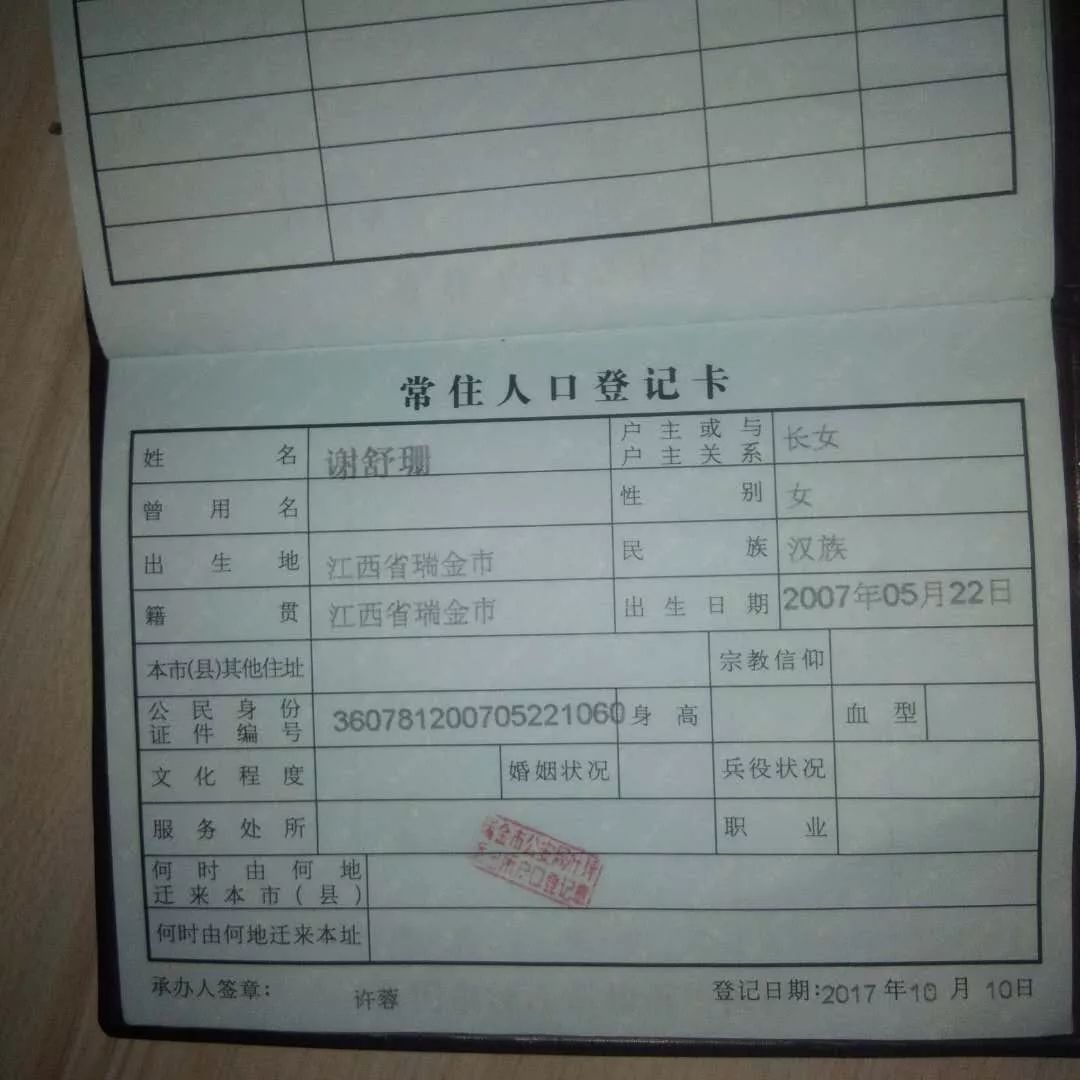 常住人口登记卡
姓名 谢舒珊 户主或与户主关系 长女
曾用名 性别 女
出生地 江西省瑞金市 民族 汉族
籍贯 江西省瑞金市 出生日期 2007年05月22日
本市(县)其他住址 宗教信仰
公民身份证件编号 360781200705221060 身高 血型
文化程度 婚姻状况 兵役状况
服务处所 职业
何时由何地迁来本市(县)
何时由何地迁来本址
承办人签章: 许蓉 登记日期:2017年10月10日